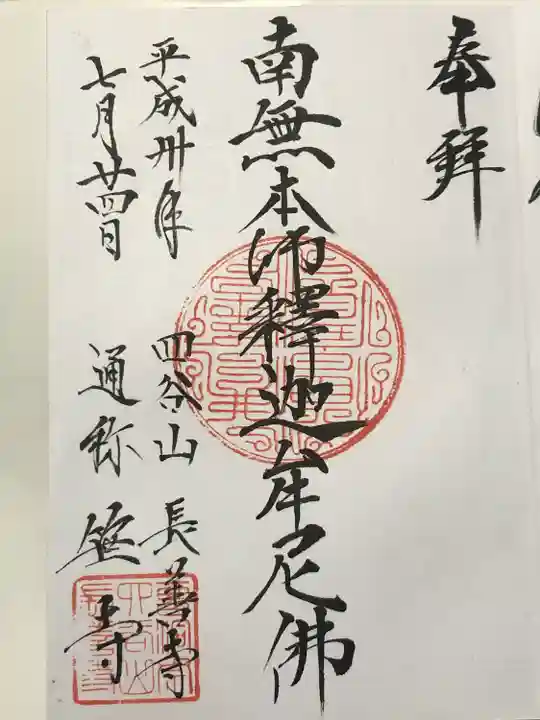 奉拝
南無本師釋迦牟尼佛
平成卅年
四谷山長善寺
七月廿四日
通称笹寺